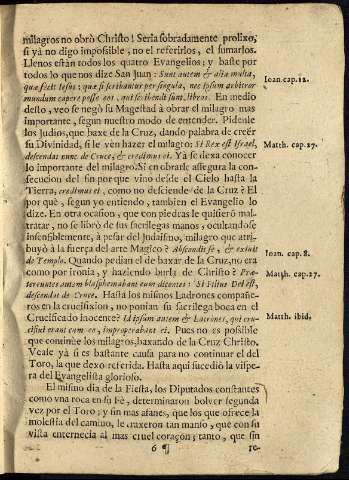 milagros no obrò Christo! Seria sobradamente prolixo,
si yà no digo imposible, no el referirlos, el sumarlos.
Llenos estàn todos los quatro Evangelios; y baste por
todos lo que nos dize San Juan: Sunt autem & alia multa,
quæ fecit Iesus: quæ si scribantur per singula, nec ipsum arbitror
mundum capere posse eos, qui scribendi sunt, libros. En medio
desto, veo se negò su Magestad à obrar el milagro mas
importante, segun nuestro modo de entender. Pidenle
los Judios, que baxe de la Cruz, dando palabra de creèr
su Divinidad, si le vèn hazer el milagro: Si Rex est Israel,
descendat nunc de Cruce, & credimus ei. Yà se dexa conocer
lo importante del milagro. Si en obrarle assegura la con-
secucion del fin por que vino desde el Cielo hasta la
Tierra, credimus ei, como no desciende de la Cruz? El
por què, segun yo entiendo, tambien el Evangelio lo
dize. En otra ocasion, que con piedras le quisierõ mal-
tratar, no se librò de sus sacrilegas manos, ocultandose
insensiblemente, à pesar del Judaismo, milagro que atri-
buyò à la fuerça del arte Magico? Abscondit se, & exivit
de Templo. Quando pedian el de baxar de la Cruz, no era
como por ironia, y haziendo burla de Christo? Præ-
tereuntes autem blasphemabant eum dicentes: Si Filius Dei est,
descendat de Cruce. Hasta los mismos Ladrones compañe-
ros en la crucifixion, no ponian su sacrilega boca en el
Crucificado inocente? Id ipsum autem & Latrones, qui cru-
cifixi erant cum eo, improperabant ei. Pues no es posible
que continùe los milagros, baxando de la Cruz Christo.
Veale yà si es bastante causa para no continuar el del
Toro, la que dexo referida. Hasta aqui sucediò la vispe-
ra del Evangelista glorioso.
El mismo dia de la Fiesta, los Diputados constantes
como vna roca en su Fè, determinaron bolver segunda
vez por el Toro; y sin mas afanes, que los que ofrece la
molestia del camino, le traxeron tan manso, que con su
vista enternecia al mas cruel coraçòn; tanto, que sin
6 ¶
re-
Ioan. cap. 12.
Matth. cap. 27.
Ioan. cap. 8.
Matth. cap. 27.
Matth. ibid.